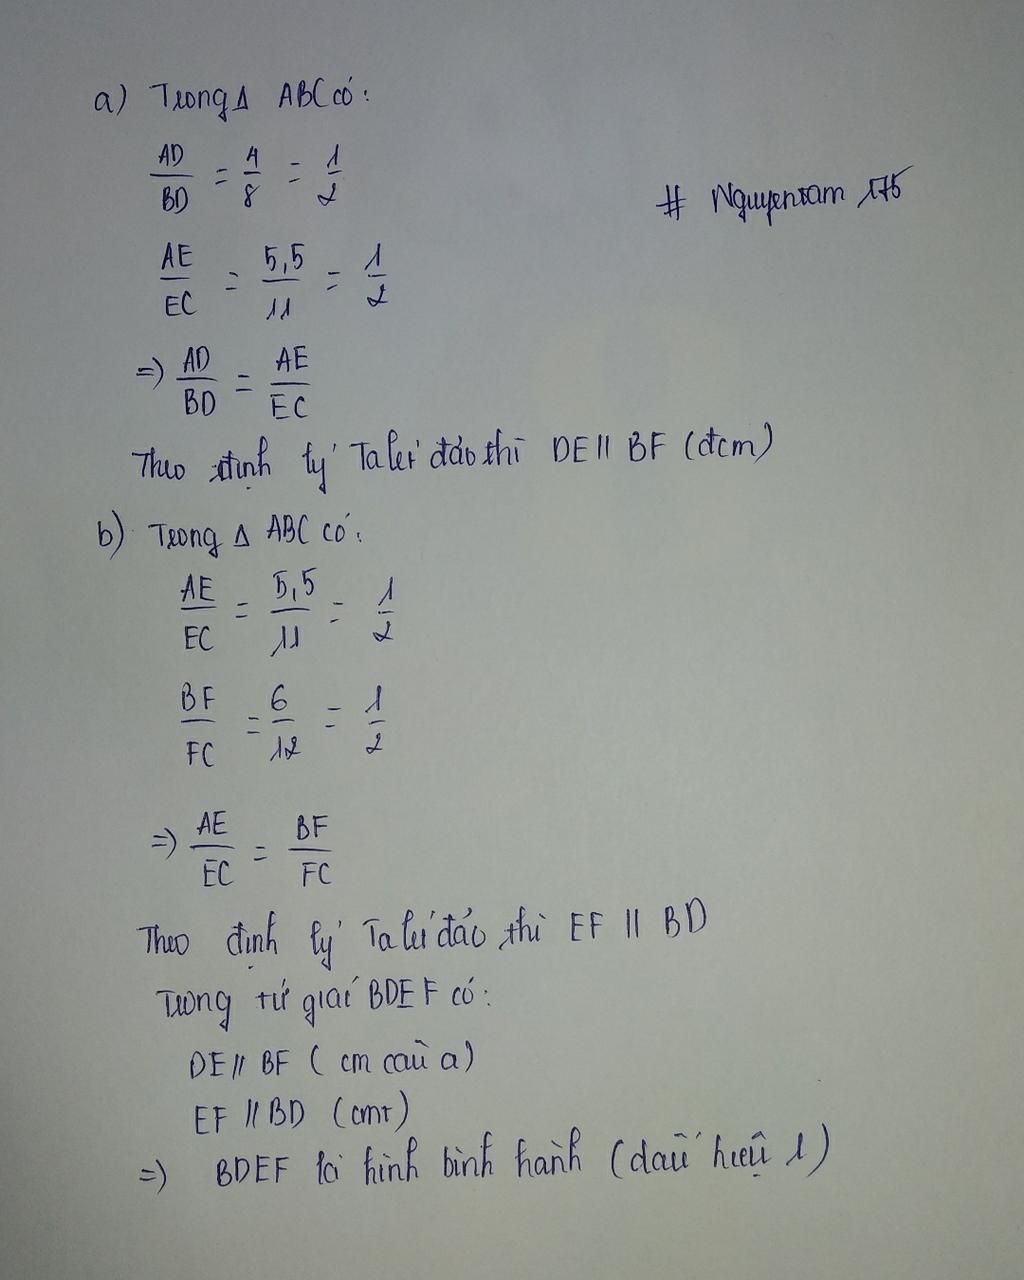 a) Trong Δ ABC có:
AD/BD = 4/8 = 1/2
# Nguyentam 175
AE/EC = 5,5/11 = 1/2
=) AD/BD = AE/EC
Theo định lý Talet đảo thì DE // BF (đcm)
b) Trong Δ ABC có:
AE/EC = 5,5/11 = 1/2
BF/FC = 6/12 = 1/2
=) AE/EC = BF/FC
Theo định lý Talet đảo thì EF // BD
Trong tứ giác BDEF có:
DE // BF (cm câu a)
EF // BD (cmt)
=) BDEF là hình bình hành (dấu hiệu 1)